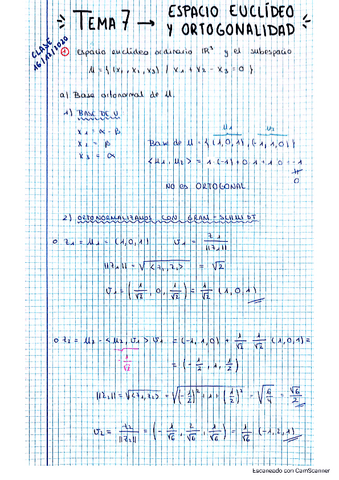 TEMA 7 → ESPACIO EUCLÍDEO
Y ORTOGONALIDAD
CLASE
16/12/2020
1 Espacio euclídeo ordinario ℝ³ y el subespacio
U = { (x₁, x₂, x₃) / x₁ + x₂ - x₃ = 0 }
a) Base ortonormal de U.
1) BASE DE U
x₁ = α - β
x₂ = β
x₃ = α
u₁ u₂
Base de U = { (1,0,1), (-1,1,0) }
<u₁, u₂> = 1·(-1) + 0·1 + 1·0 = -1
≠
0
NO ES ORTOGONAL
2) ORTONORMALIZAMOS CON GRAM-SCHMIDT
o z₁ = u₁ = (1,0,1) v₁ = z₁/||z₁||
||z₁|| = √<z₁,z₁> = √2
v₁ = (1/√2, 0, 1/√2) = 1/√2 (1,0,1)
o z₂ = u₂ - <u₂,v₁> v₁ = (-1,1,0) + 1/√2 · 1/√2 (1,0,1) =
-1/√2
= (-1/2, 1, 1/2)
||z₂|| = √<z₂,z₂> = √((-1/2)² + 1 + (1/2)²) = √(6/4) = √6/2
v₂ = z₂/||z₂|| = (-1/√6, 2/√6, 1/√6) = 1/√6 (-1,2,1)
Escaneado con CamScanner